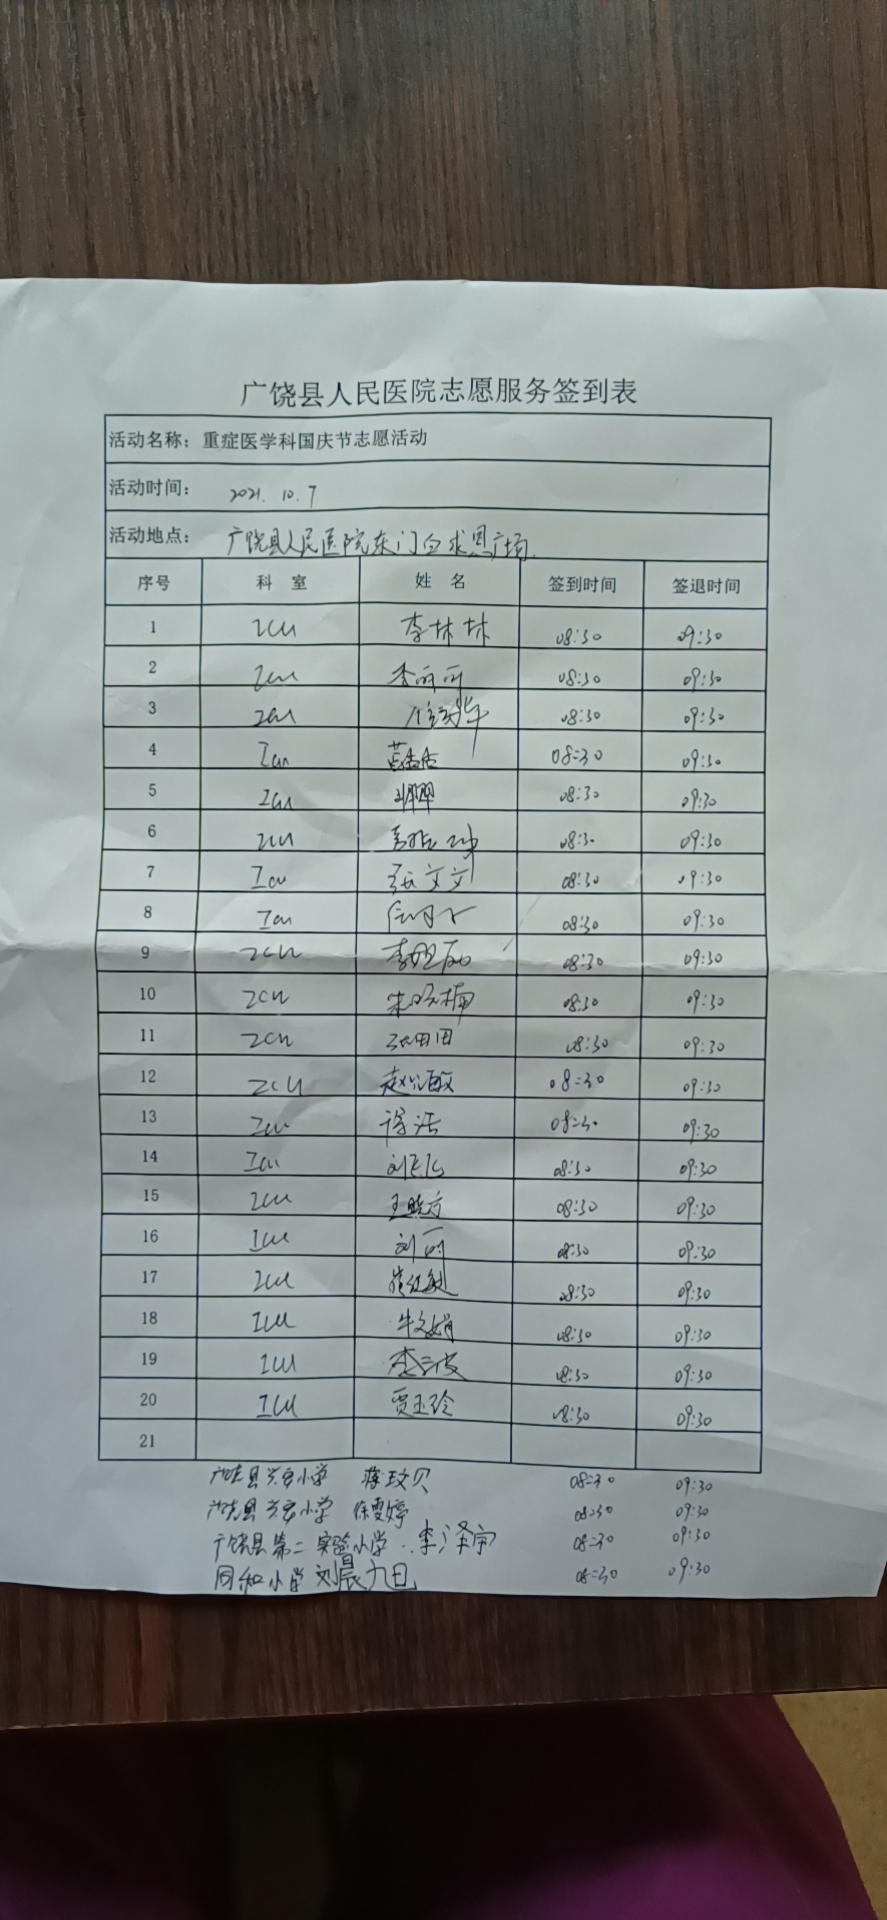 广饶县人民医院志愿服务签到表
活动名称：重症医学科国庆节志愿活动
活动时间： 2021.10.7
活动地点： 广饶县人民医院东门白求恩广场
序号 科 室 姓 名 签到时间 签退时间
1 ICU 李林林 08:30 09:30
2 ICU 李丽丽 08:30 09:30
3 ICU 08:30 09:30
4 ICU 08:30 09:30
5 ICU 08:30 09:30
6 ICU 08:30 09:30
7 ICU 张文文 08:30 09:30
8 ICU 08:30 09:30
9 ICU 08:30 09:30
10 ICU 朱晓楠 08:30 09:30
11 ICU 张田田 08:30 09:30
12 ICU 08:30 09:30
13 ICU 徐洁 08:30 09:30
14 ICU 刘飞飞 08:30 09:30
15 ICU 王晓方 08:30 09:30
16 ICU 刘丽 08:30 09:30
17 ICU 08:30 09:30
18 ICU 牛文娟 08:30 09:30
19 ICU 李三波 08:30 09:30
20 ICU 贾玉玲 08:30 09:30
21
广饶县兴安小学 蒋玟贝 08:30 09:30
广饶县兴安小学 徐雯婷 08:30 09:30
广饶县第二实验小学 李泽宇 08:30 09:30
同和小学 刘晨九日 08:30 09:30